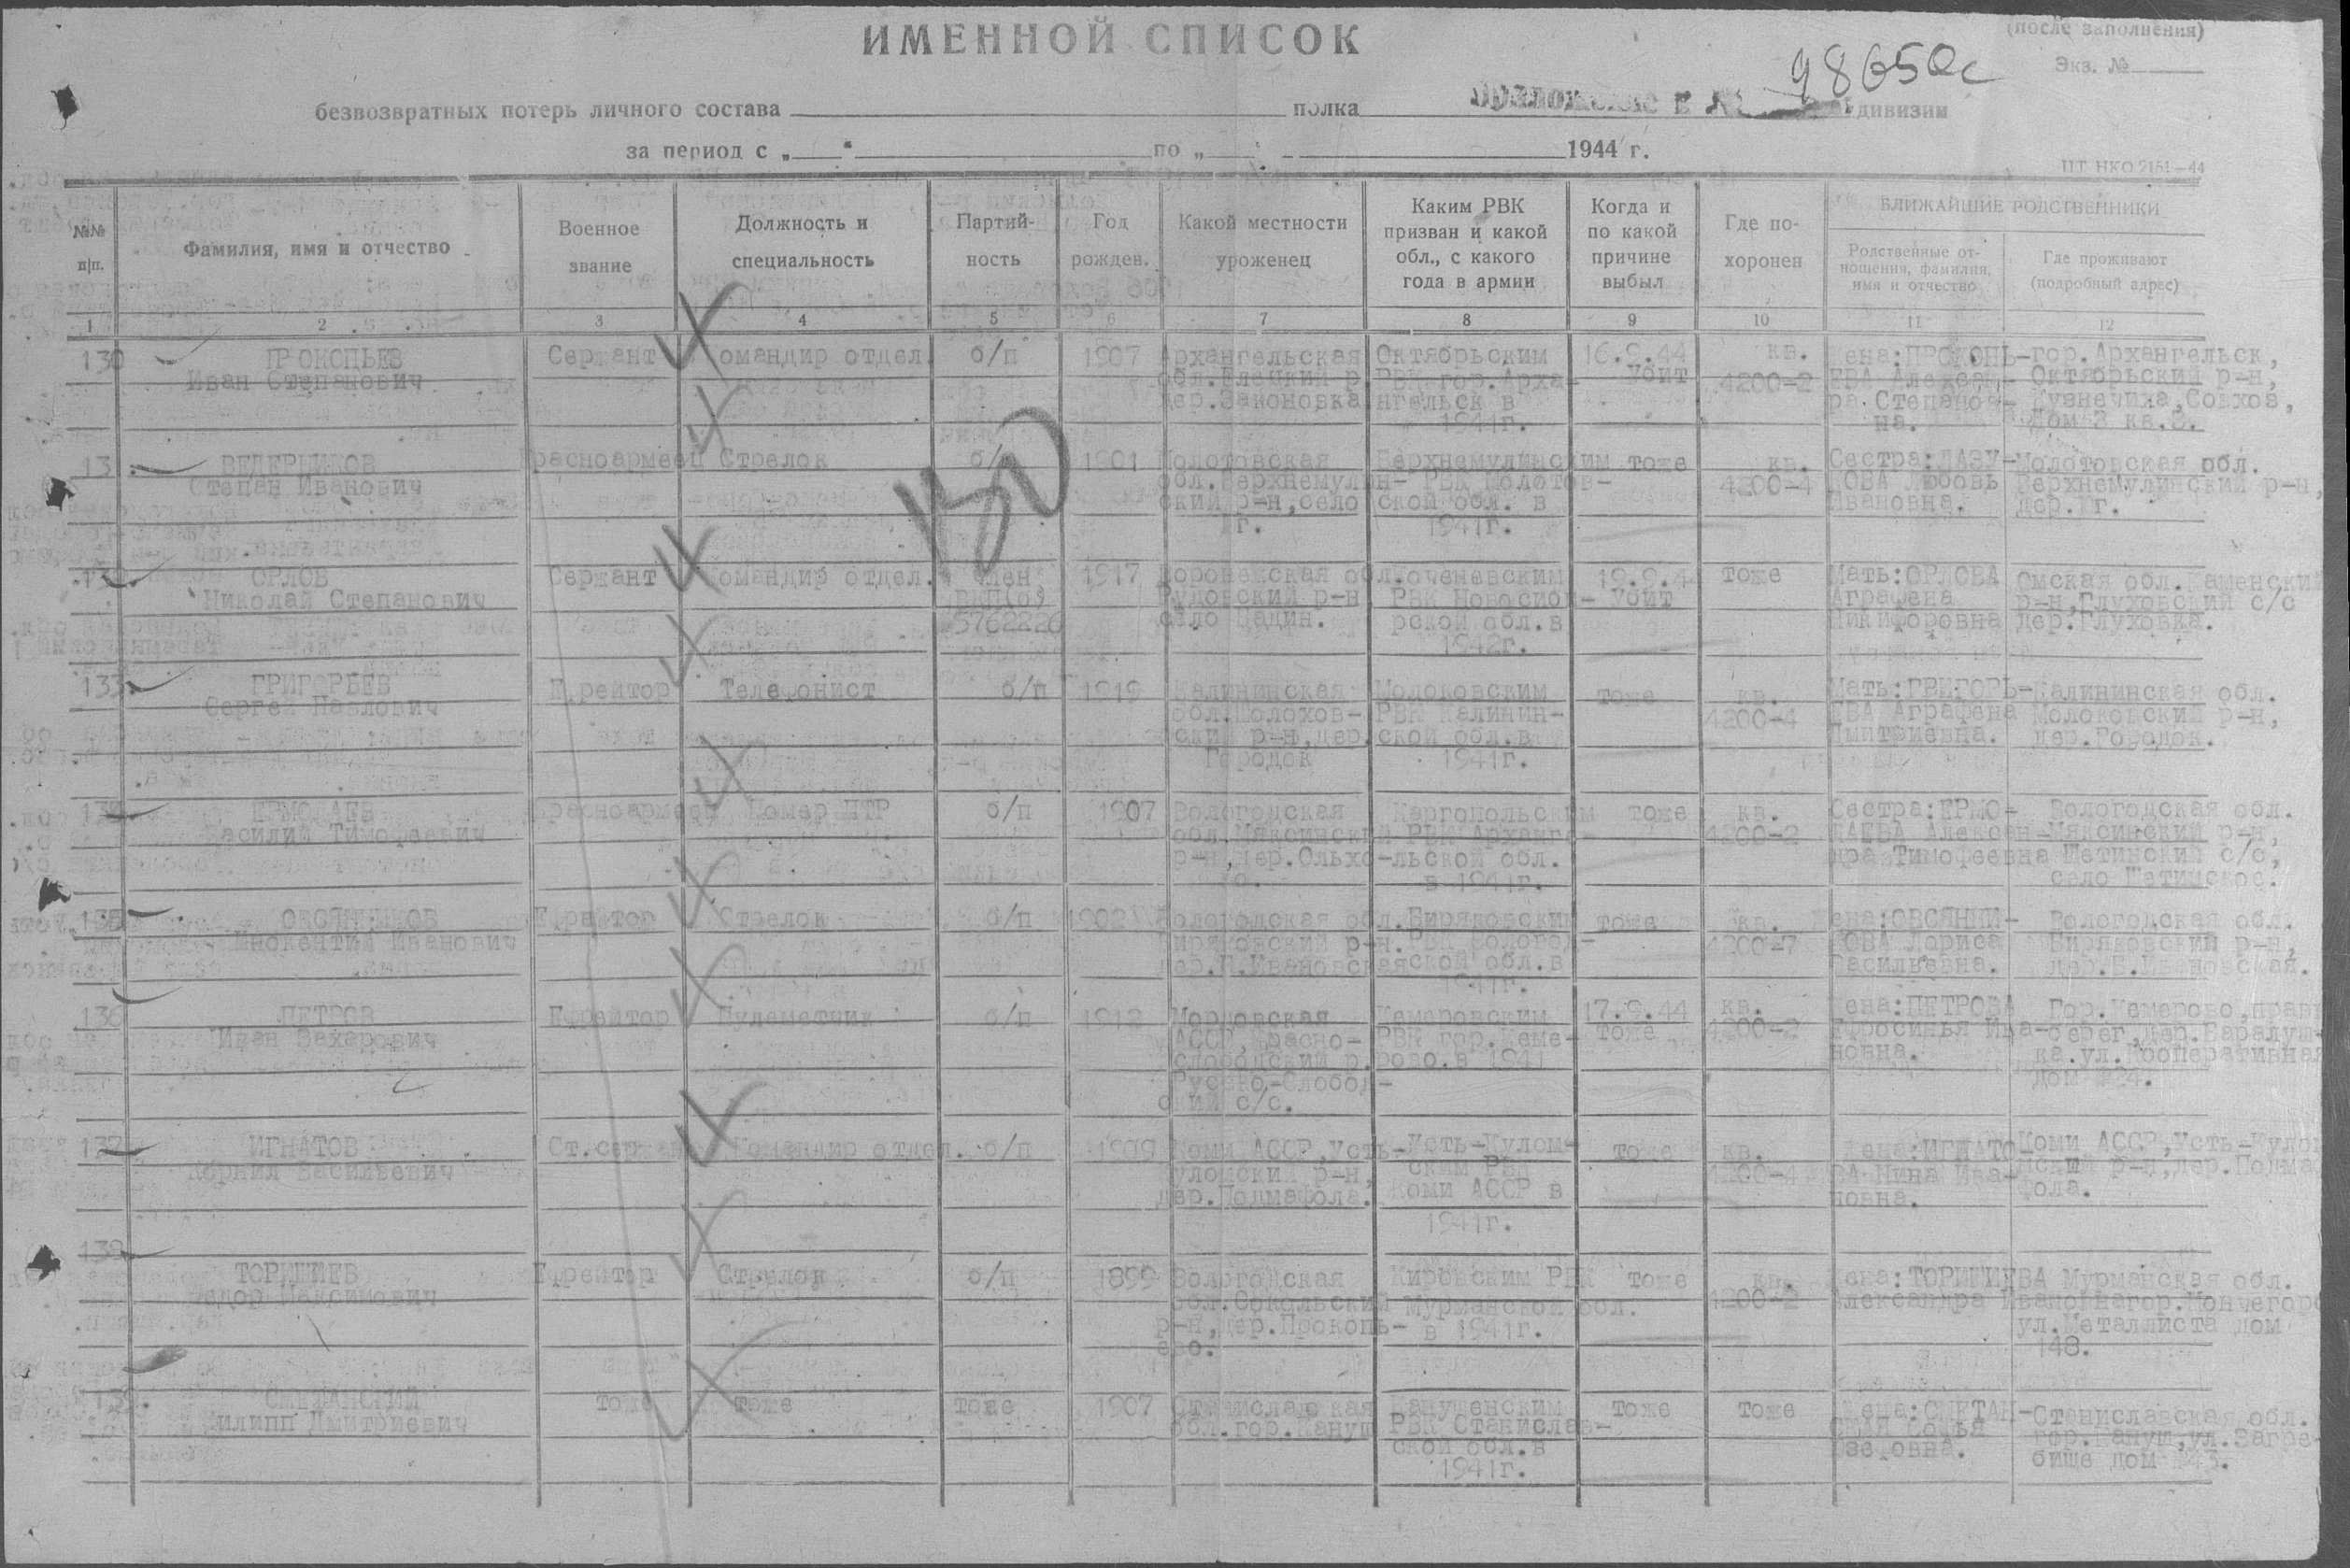 ИМЕННОЙ СПИСОК
(после заполнения)
Экз. №
98650с
безвозвратных потерь личного состава полка дивизии
за период с „ “ по „ 1944 г.
ЦТ НКО 2151—44
№№ п|п.
Фамилия, имя и отчество
Военное звание
Должность и специальность
Партий-ность
Год рожден.
Какой местности уроженец
Каким РВК призван и какой обл., с какого года в армии
Когда и по какой причине выбыл
Где по-хоронен
БЛИЖАЙШИЕ РОДСТВЕННИКИ
Родственные от-ношения, фамилия, имя и отчество
Где проживают (подробный адрес)
1 2 3 4 5 6 7 8 9 10 11 12
150
130 ПРОКОПЬЕВ Сержант омандир отдел. б/п 1907 Архангельская Октябрьским 16.9.44 кв. Жена:ПРОКОПЬ- гор.Архангельск,
Иван Степанович обл. РВК гор.Арха- убит 4200-2 ЕВА Алексан- Октябрьский р-н,
дер.Законовка нгельск в ра Степанов- Кузнечиха,Совхоз,
1941г. на. Дом 3 кв.3.
13 ВЕДЕРНИКОВ Красноармеец Стрелок б/ 1901 Молотовская Верхнемулинским тоже кв. Сестра: Молотовская обл.
Степан Иванович обл.Верхнемулин- РВК Молотов- 4200-4 Любовь Верхнемулинский р-н,
ский р-н,село ской обл. в Ивановна. дер. г.
г. 1941г.
13 ОРЛОВ Сержант омандир отдел. Член 1917 Воронежская обл. Коченевским 19.9.4 тоже Мать:ОРЛОВА Омская обл.Каменский
Николай Степанович ВКП(б) р-н РВК Новосиби- убит Аграфена р-н,Глуховский с/с
5762220 село рской обл.в Никифоровна дер.Глуховка.
1942г.
133 ГРИГОРЬЕВ Ефрейтор Телефонист б/п 1919 Калининская Молоковским тоже кв. Мать:ГРИГОРЬ- Калининская обл.
Сергей Павлович обл.Молохов- РВК Калинин- 4200-4 ЕВА Аграфена Молоковский р-н,
ский р-н,дер. ской обл.в Дмитриевна. дер.Городок.
Городок 1941г.
134 ЕРМОЛАЕВ Красноармеец Номер ПТР б/п 1907 Вологодская Каргопольским тоже кв. Сестра:ЕРМО- Вологодская обл.
Василий Тимофеевич обл.Мяксинский РВК Арханге- 4200-2 ЛАЕВА Алексан- Мяксинский р-н,
р-н,дер.Ольхо- льской обл. дра Тимофеевна Щетинский с/с,
в 1941г. село Щетинское.
135 ОВСЯННИКОВ Ефрейтор Стрелок б/п 1902 Вологодская обл. Биряковским тоже кв. Жена:ОВСЯННИ- Вологодская обл.
Иннокентий Иванович Биряковский р-н. РВК Вологод- 4200-7 КОВА Лариса Биряковский р-н,
дер.Н.Ивановская ской обл.в Васильевна.
1941г.
136 ПЕТРОВ Ефрейтор Пулеметчик б/п 1912 Мордовская Кемеровским 17.9.44 кв. Жена:ПЕТРОВА Гор.Кемерово,прав
Иван Захарович АССР,Красно- РВК гор.Кеме- тоже 4200-2 Ефросинья Ива- берег,дер.
слободский р. рово.в 1941 новна. ка.ул.Кооперативная
Русско-Слобод- дом №24.
ский с/с.
137 ИГНАТОВ Ст.серж Командир отдел. б/п 1909 Коми АССР,Усть- Усть-Кулом- тоже кв. Жена:ИГНАТО- Коми АССР,Усть-Кулом
Корнил Васильевич Куломский р-н, ским РВК 4200-4 ВА Нина Ива- ский р-н,дер.
Коми АССР в новна.
1941г.
138
Ефрейтор Стрелок б/п 1899 Вологодская Кировским РВК тоже кв. Жена: Мурманская обл.
Федор Максимович обл.Сокольский Мурманской обл. 4200-2 Александра Ивановна гор.Мончегорс
р-н,дер.Прокопь- в 1941г. ул.Металлиста дом
ево. 148.
139. тоже тоже тоже 1907 Станиславская тоже тоже Жена:СМЕТАН- Станиславская обл.
Филипп Дмитриевич обл.гор. РВК Станислав- СКАЯ Софья гор. ул.Загре-
ской обл.в бище дом №43.
1941г.